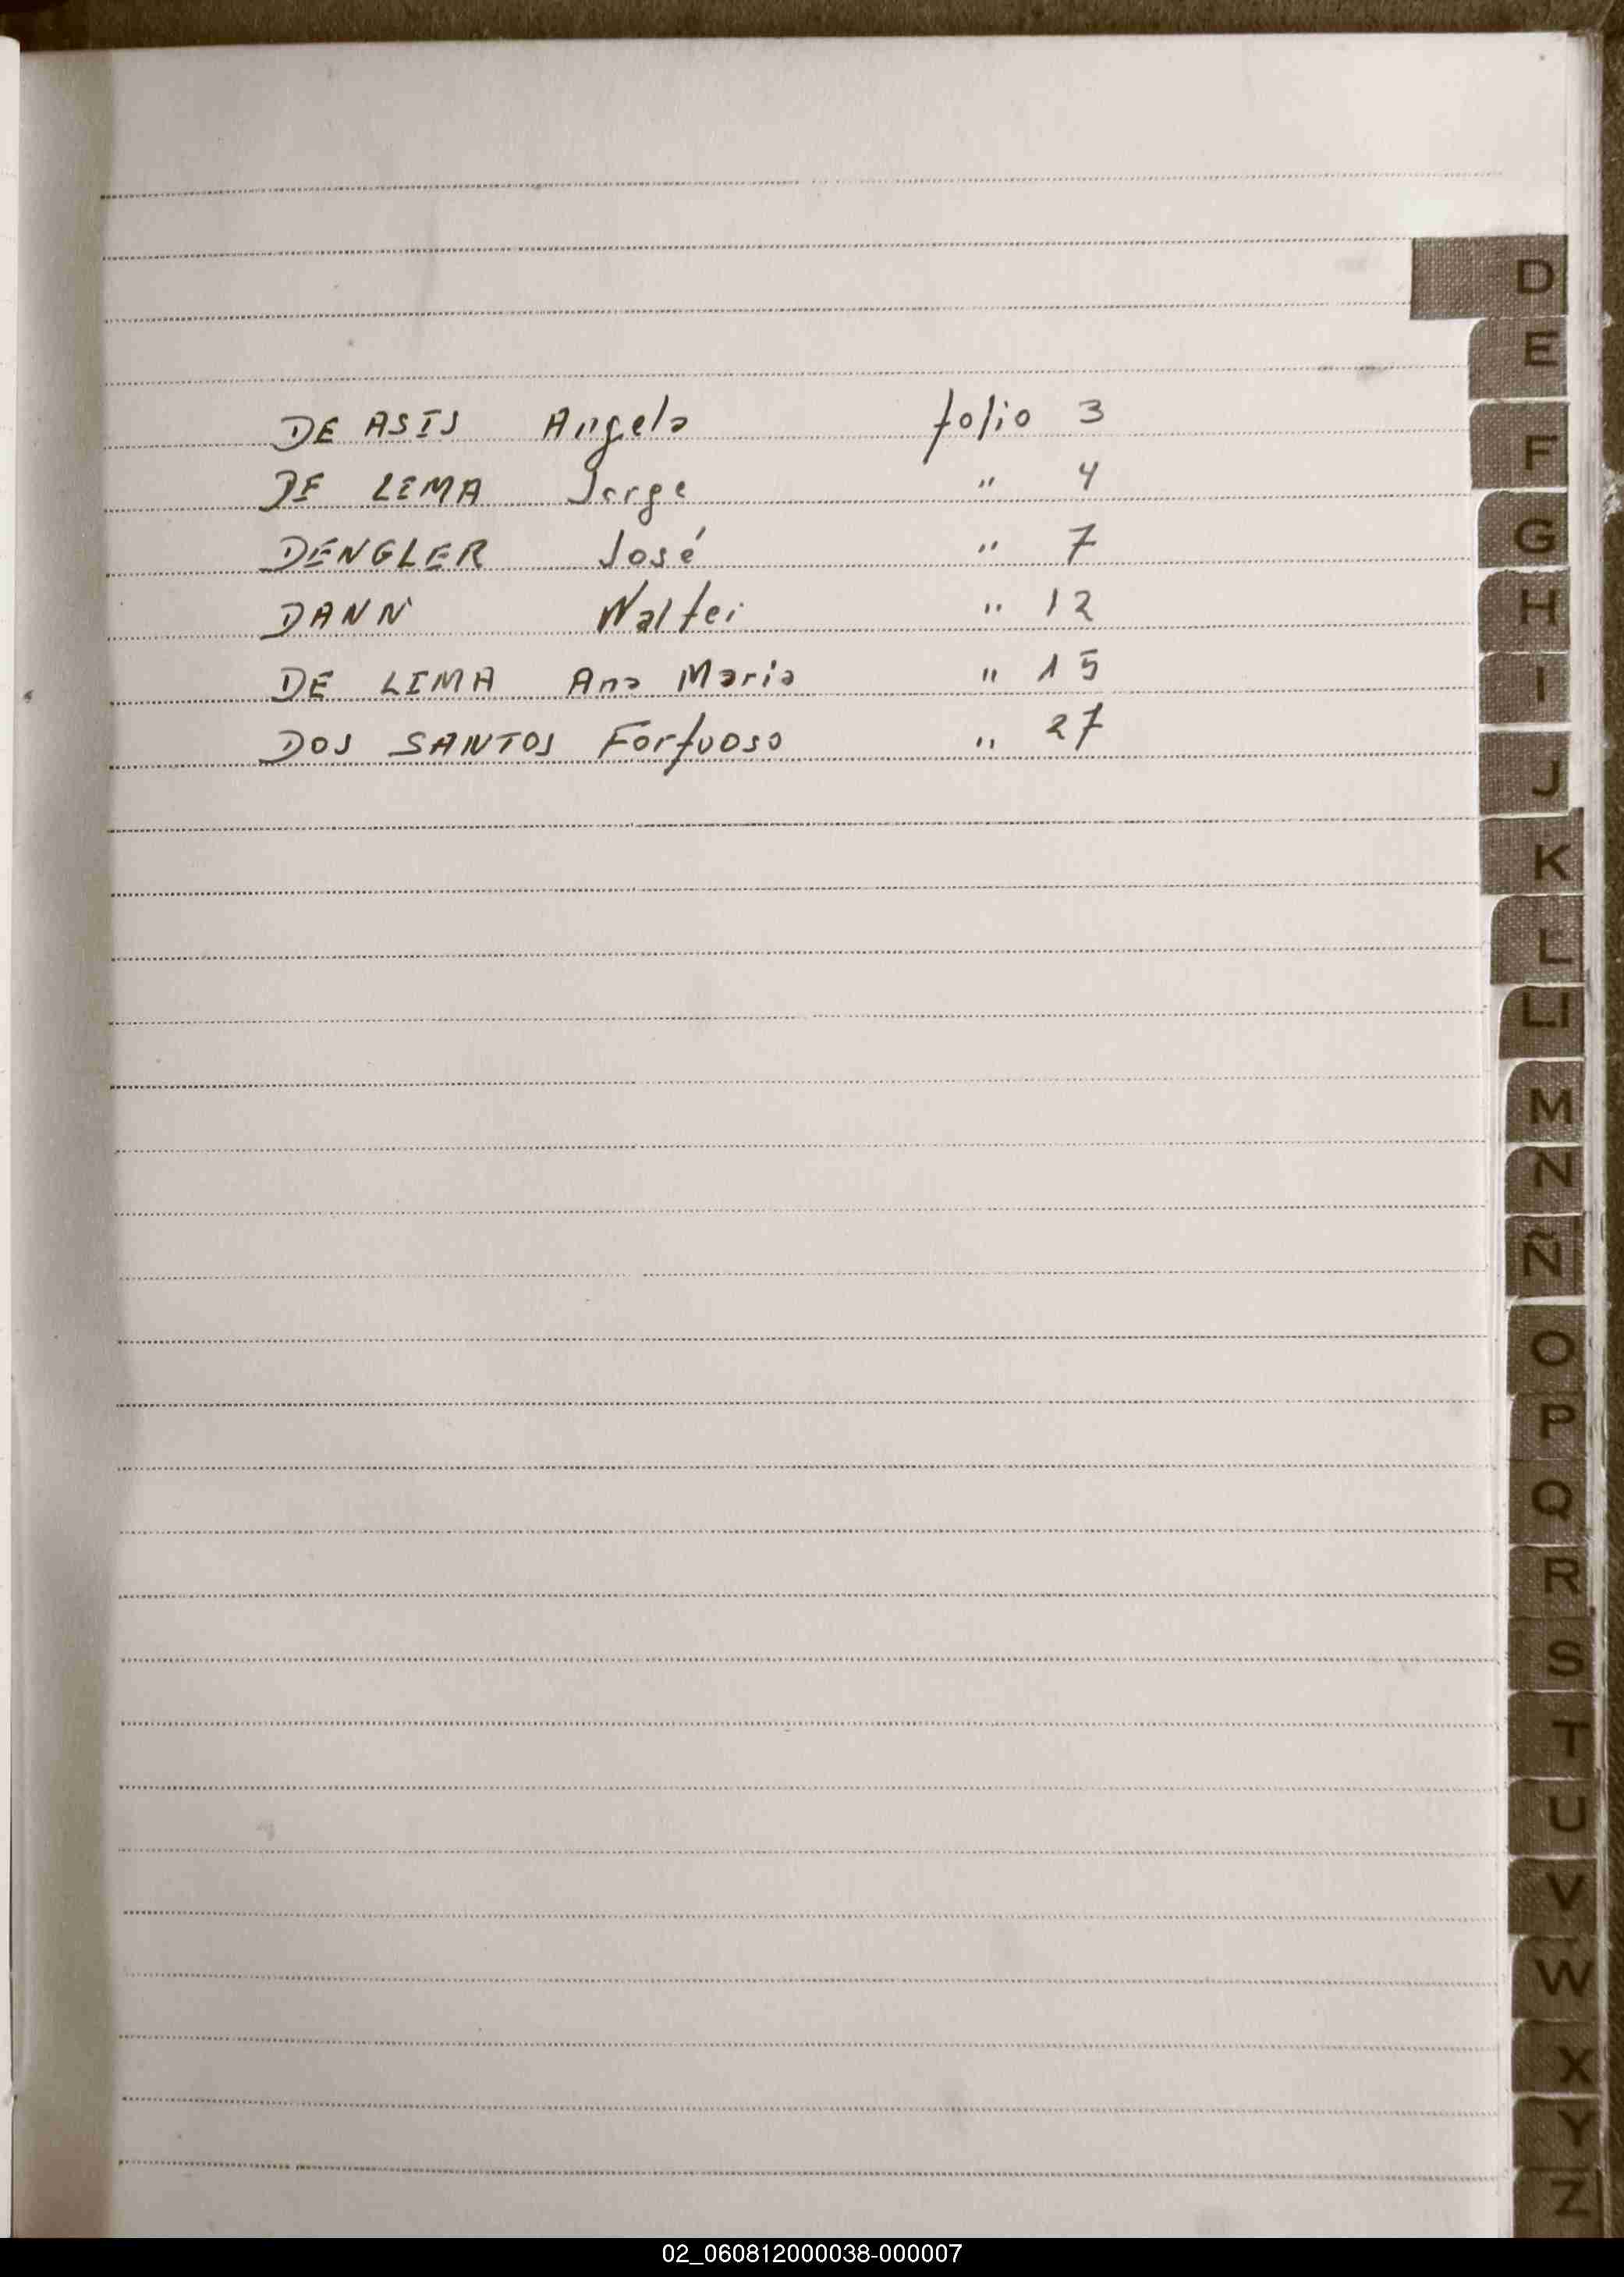 DE ASIS Angela folio 3
DE LEMA Jorge " 4
DENGLER José " 7
DANN Walter " 12
DE LIMA Ana Maria " 15
DOS SANTOS Fortuoso " 27
D
E
F
G
H
I
J
K
L
Ll
M
N
Ñ
O
P
Q
R
S
T
U
V
W
X
Y
Z
02_060812000038-000007